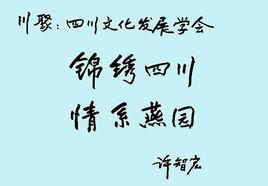 川聚：四川文化发展学会
锦绣四川
情系燕园
许智宏